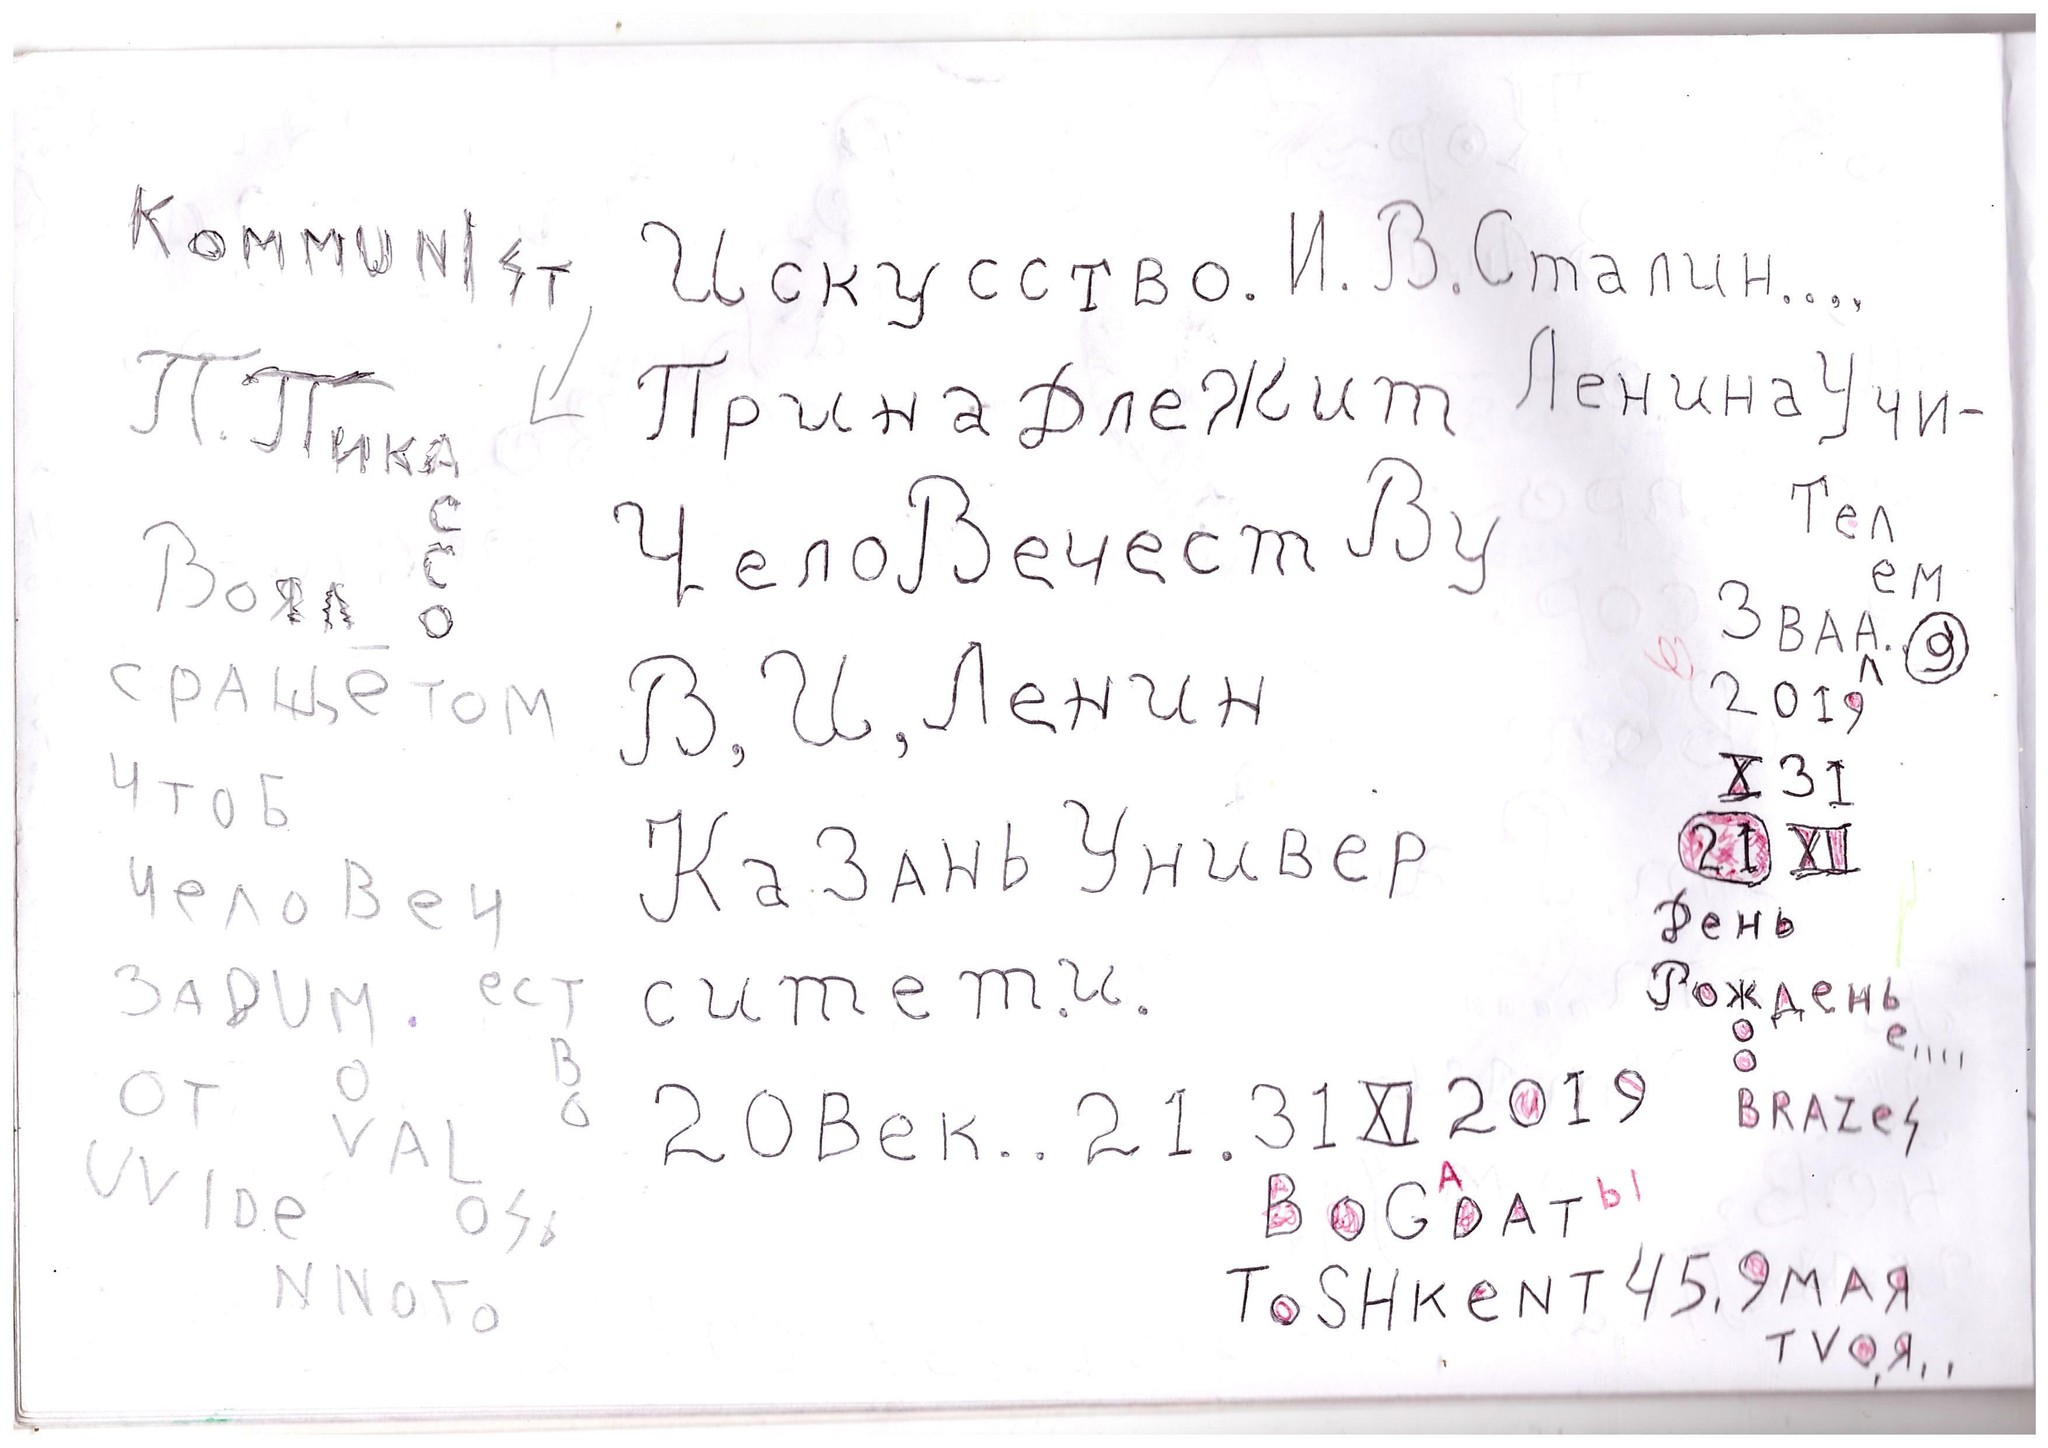 KOMMUNIST
П. ПИКА
ССО
Воял
сращётом
чтоб
человеч
ество
ЗАDUM.
О
VAL
OSь
от
UVIDe
NNОГО
Искусство.
Принадлежит
ЧелоВечестВу
В, И, Ленин
КаЗАНЬ Универ
ситет.и.
20Век.. 21.31 XI 2019
И. В. Сталин....
Ленина Учи-
Тел
ем
ЗВАЛ. Я
2019
X 31
21 XII
День
Рождень
е....
BRAZeS
BOGADATЫ
TOSHKeNT 45.9 МАЯ
TVOЯ..